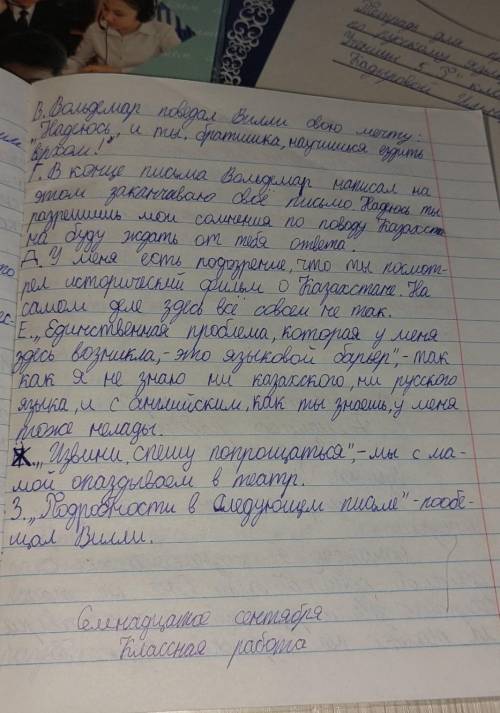 В. Вольдемар поведал Вилли свою мечту:
"Надеюсь, и ты, братишка, научишься ездить
верхом!"
Г. В конце письма Вольдемар написал на
этом заканчиваю своё письмо. Надеюсь ты
разрешишь мои сомнения по поводу Казахста
на буду ждать от тебя ответа".
Д. У меня есть подозрение, что ты посмот-
рел исторический фильм о Казахстане. На
самом деле здесь всё совсем не так.
Е. „Единственная проблема, которая у меня
здесь возникла, - это языковой барьер", - так
как я не знаю ни казахского, ни русского
языка, и с английским, как ты знаешь, у меня
тоже нелады.
Ж. „Извини, спешу попрощаться", - мы с ма-
мой опаздываем в театр.
З. „Подробности в следующем письме" - пообе-
щал Вилли.
Семнадцатое сентября
Классная работа